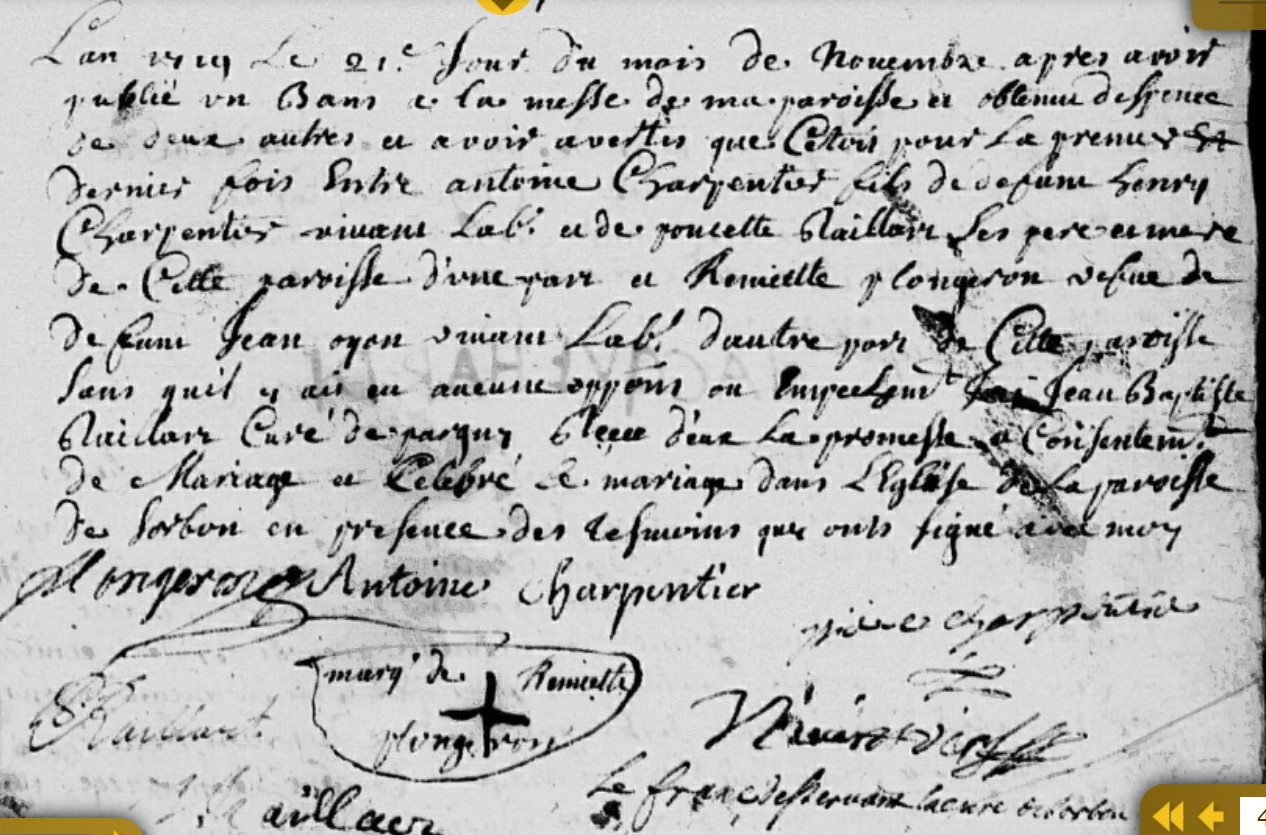 L'an 1719 Le 21.e Jour du mois de Novembre apres avoir
publié un Bans a la messe de ma paroisse et obtenu despence
de deux autres et avoir avertis que Cetois pour La premier et
dernier fois Entre antoine Charpentier fils de defunt henry
Charpentier vivant Lab.r et de poncette Raillart Ses pere et mere
de Cette paroisse d'une part et Remiette plongeron vefue de
defunt Jean oyon vivant Lab.r d'autre part de Cette paroisse
sans quil y ait eu aucune opp̃ons ou Empechemt Jai Jean Baptiste
Raillart Curé de pargny Reçeu d'eux La promesse et Consentem.t
de Mariage et Celebré Le mariage dans L'Eglise de La paroisse
de sorbon en presence des tesmoins que onts signé avec moy
plongeron Antoine Charpentier
charpentier
marq de Remiette
plongeron
Raillart
Le franc desservant la cure de sorbon